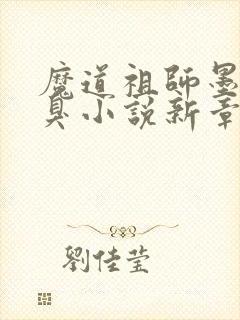 魔道祖師墨
臭小說新章
劉佳莹